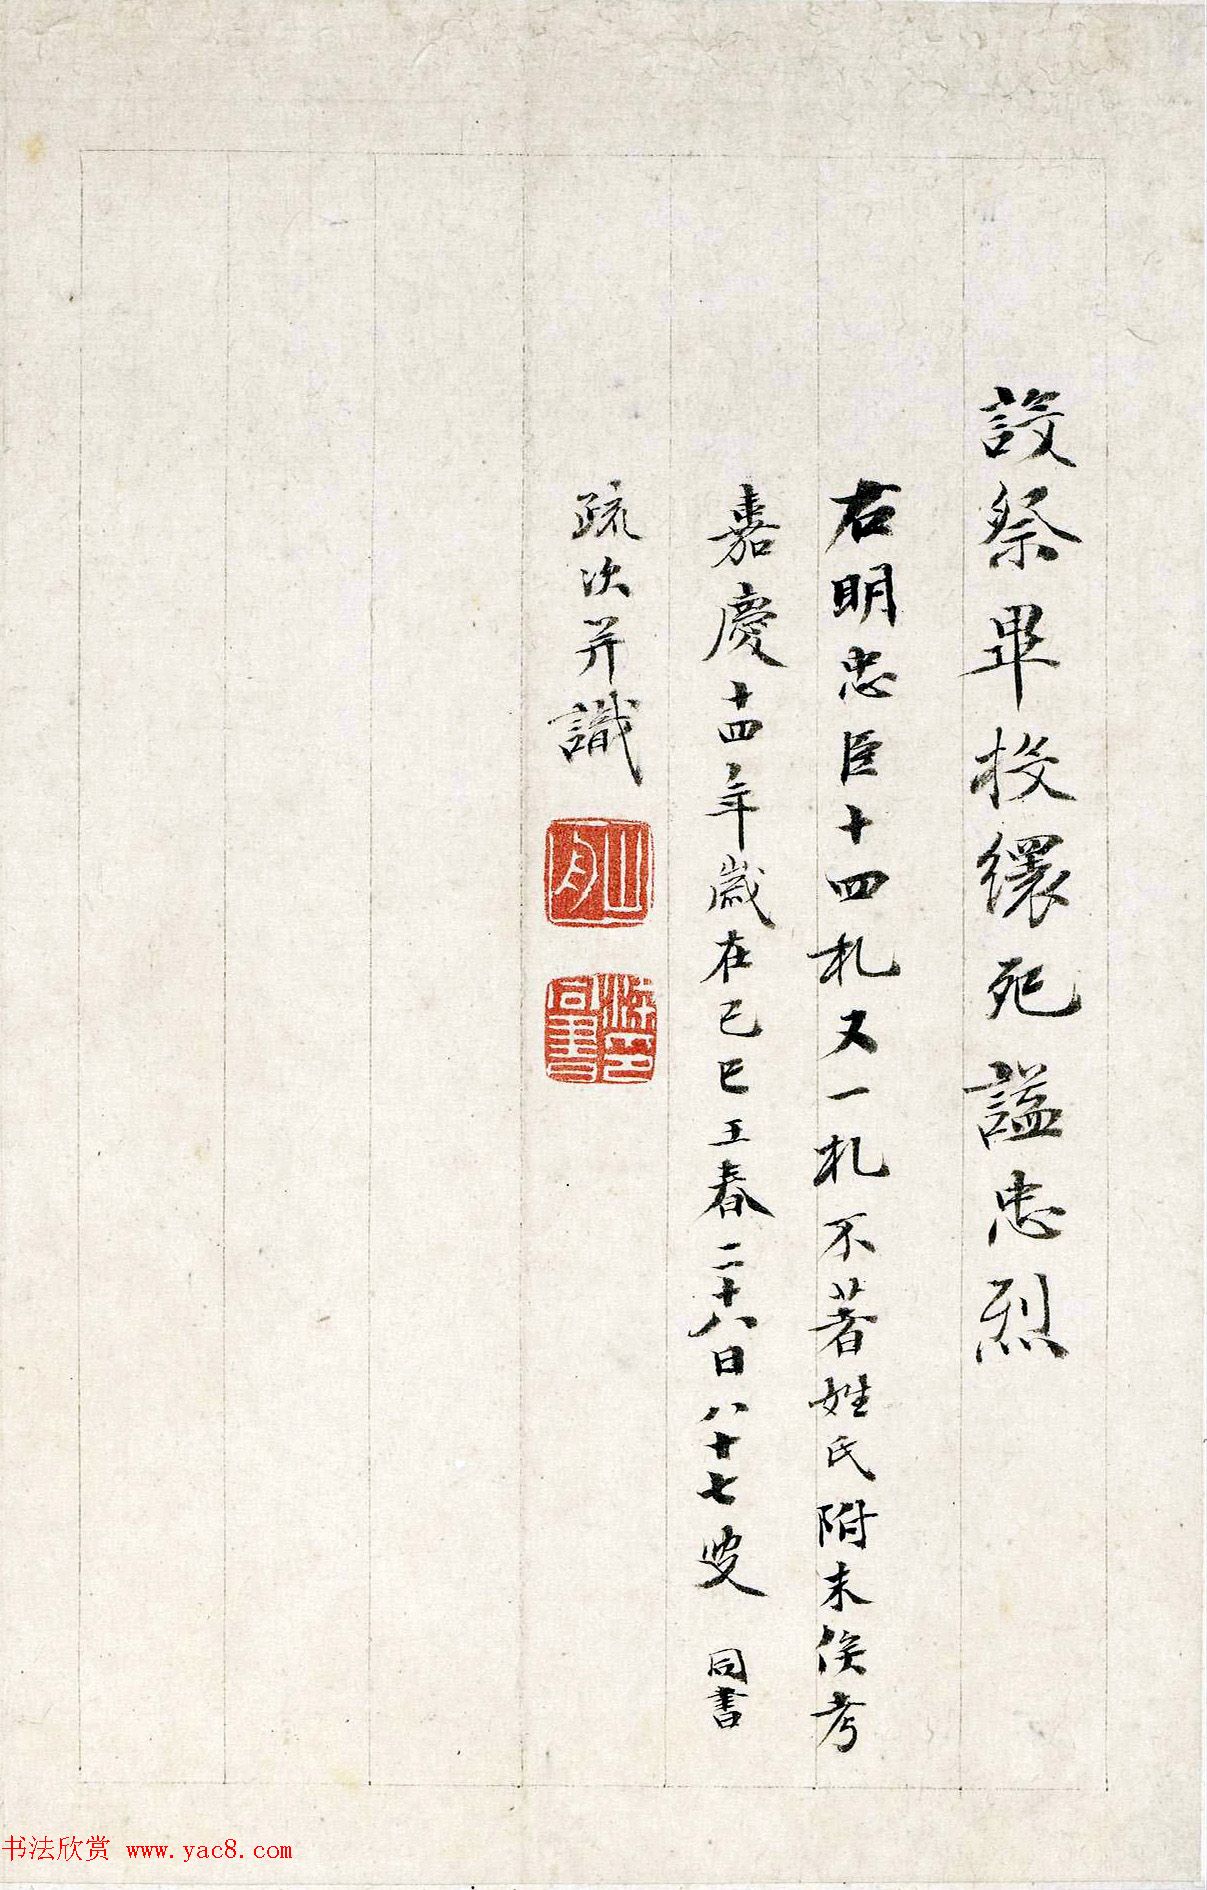 設祭畢投繯死謚忠烈
右明忠臣十四札又一札不著姓氏附末俟考
嘉慶十四年歲在己巳王春二十八日八十七叟 同書
疏次并識
山舟
梁氏
同書
书法欣赏 www.yac8.com